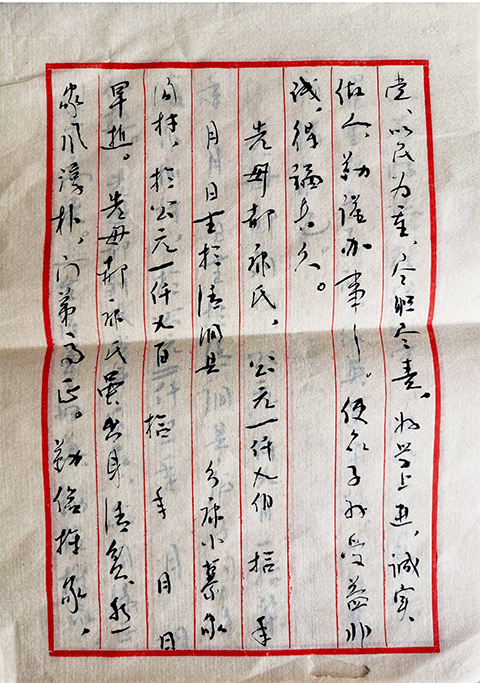 党、以民为重、尽职尽责、好学上进、诚实
做人、勤谨办事。使众子孙受益非
浅、得福长久。
先母郝府氏、公元一仟九佰 拾 年
月 日生于清涧县 乡府小寨家
沟村，于公元一仟九百 拾 年 月 日
早逝。先母郝府氏虽出身清贫、然
家风淳朴、门第马正。勤俭持家、